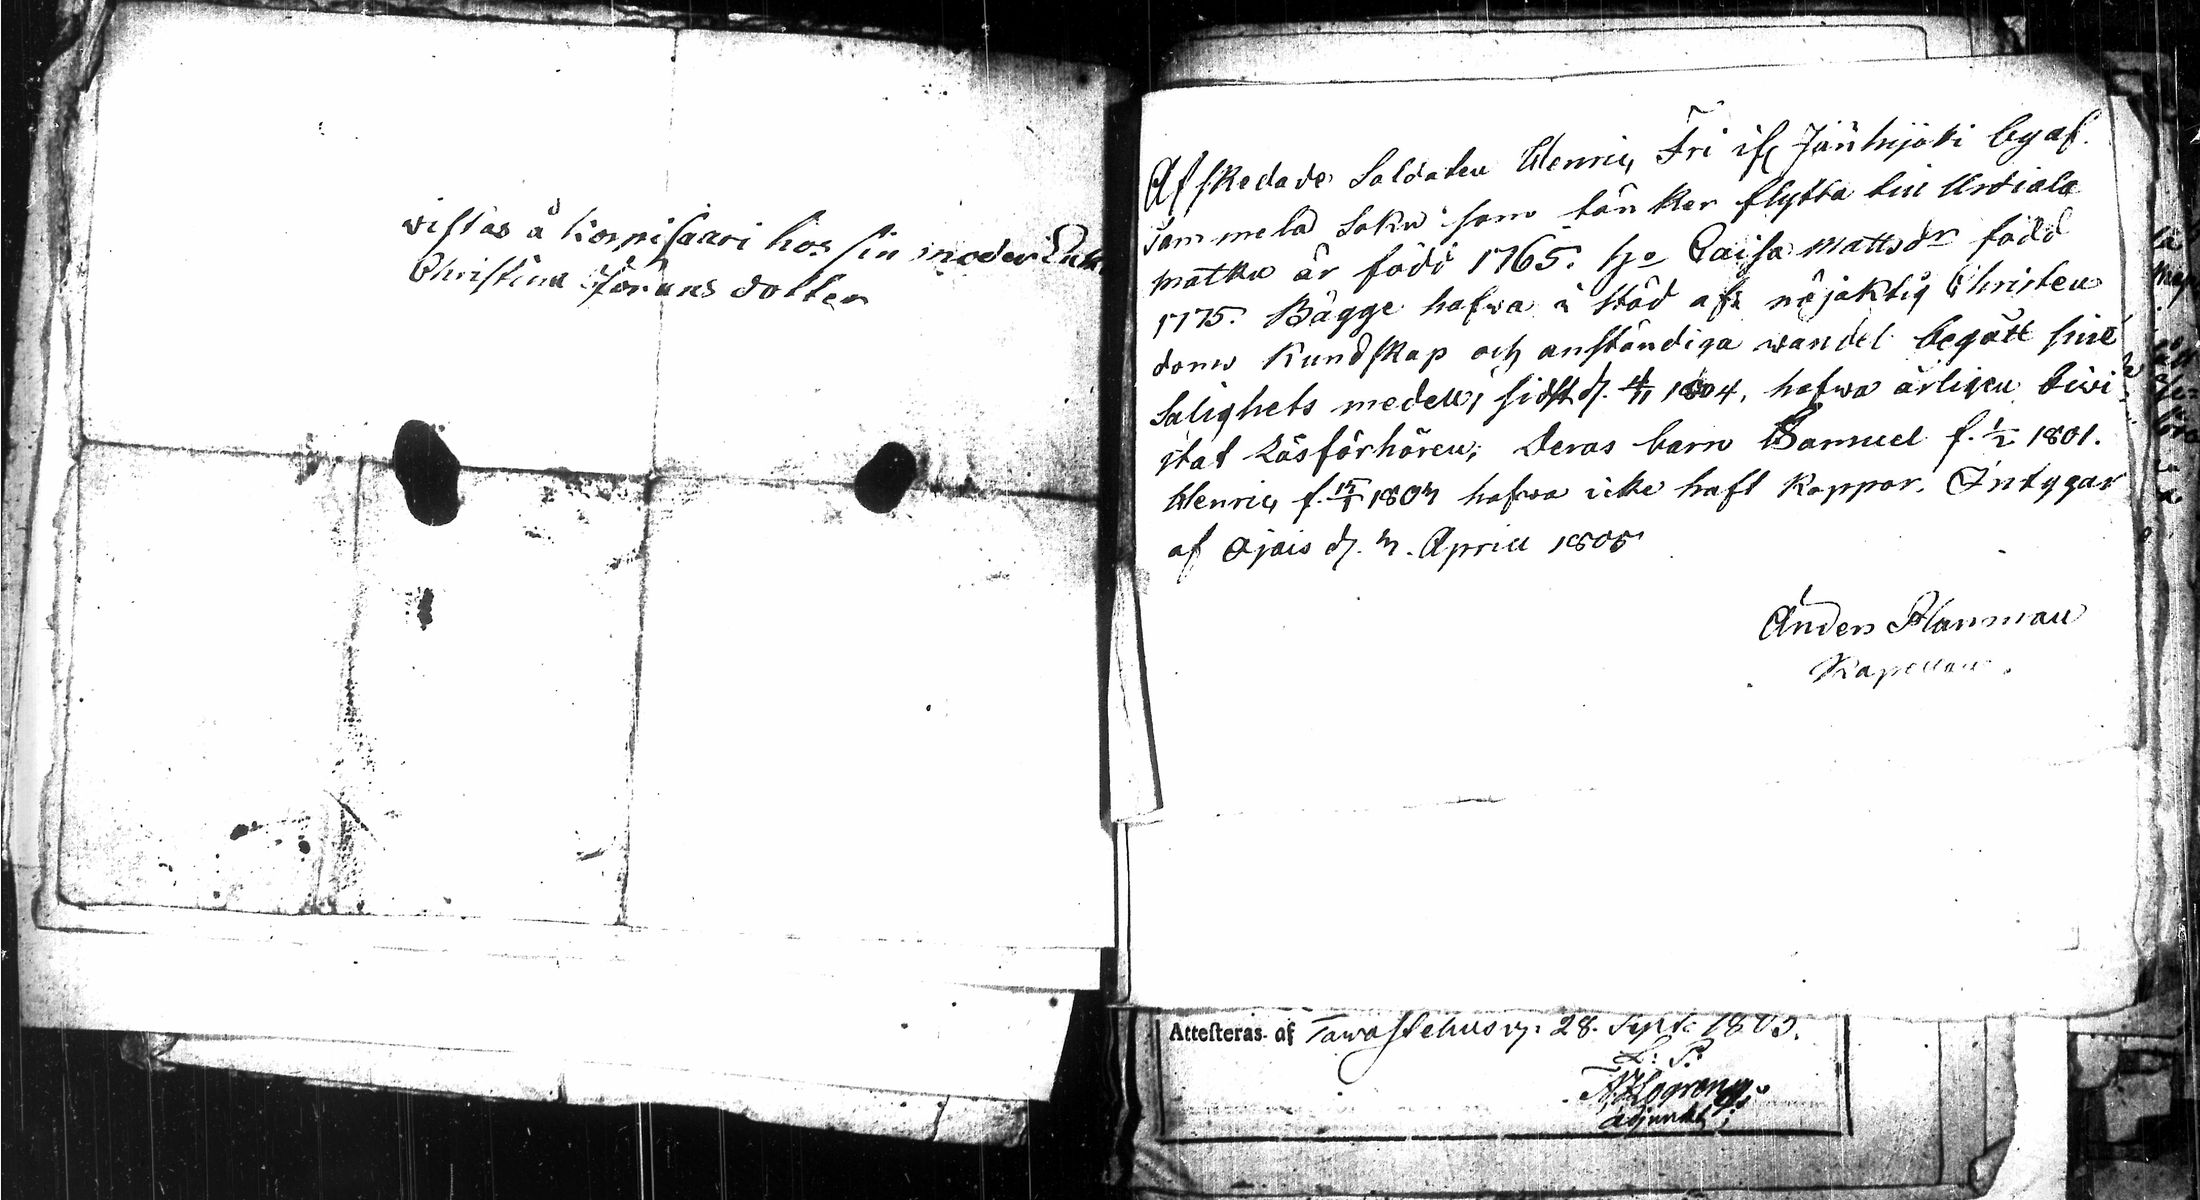 wistas å Kornisaari hos sin moder Enk
Christina Jörans dotter
Afskedade Soldaten Henric Fri if Jänhijoki by af
Sammela Sokn som tänker flytta till Urdiala
matku är född 1765. H:o Caisa Mattsdr född
1775. Bägge hafwa i stöd af nöjaktig Christen
doms Kundskap och anständiga wandel begått sine
Salighets medell, sidst d. 4/11 1804, hafwa ärligen biwi
stat Läsförhören; deras barn Samuel f. 1/2 1801.
Henric f. 15/1 1803 hafwa icke haft Koppor. Intygar
af Ojais d. 3. Aprill 1805
Anders Planman
Kapellan.
Attesteras af Tawastehus d. 28. Sept. 1805.
Adjunct